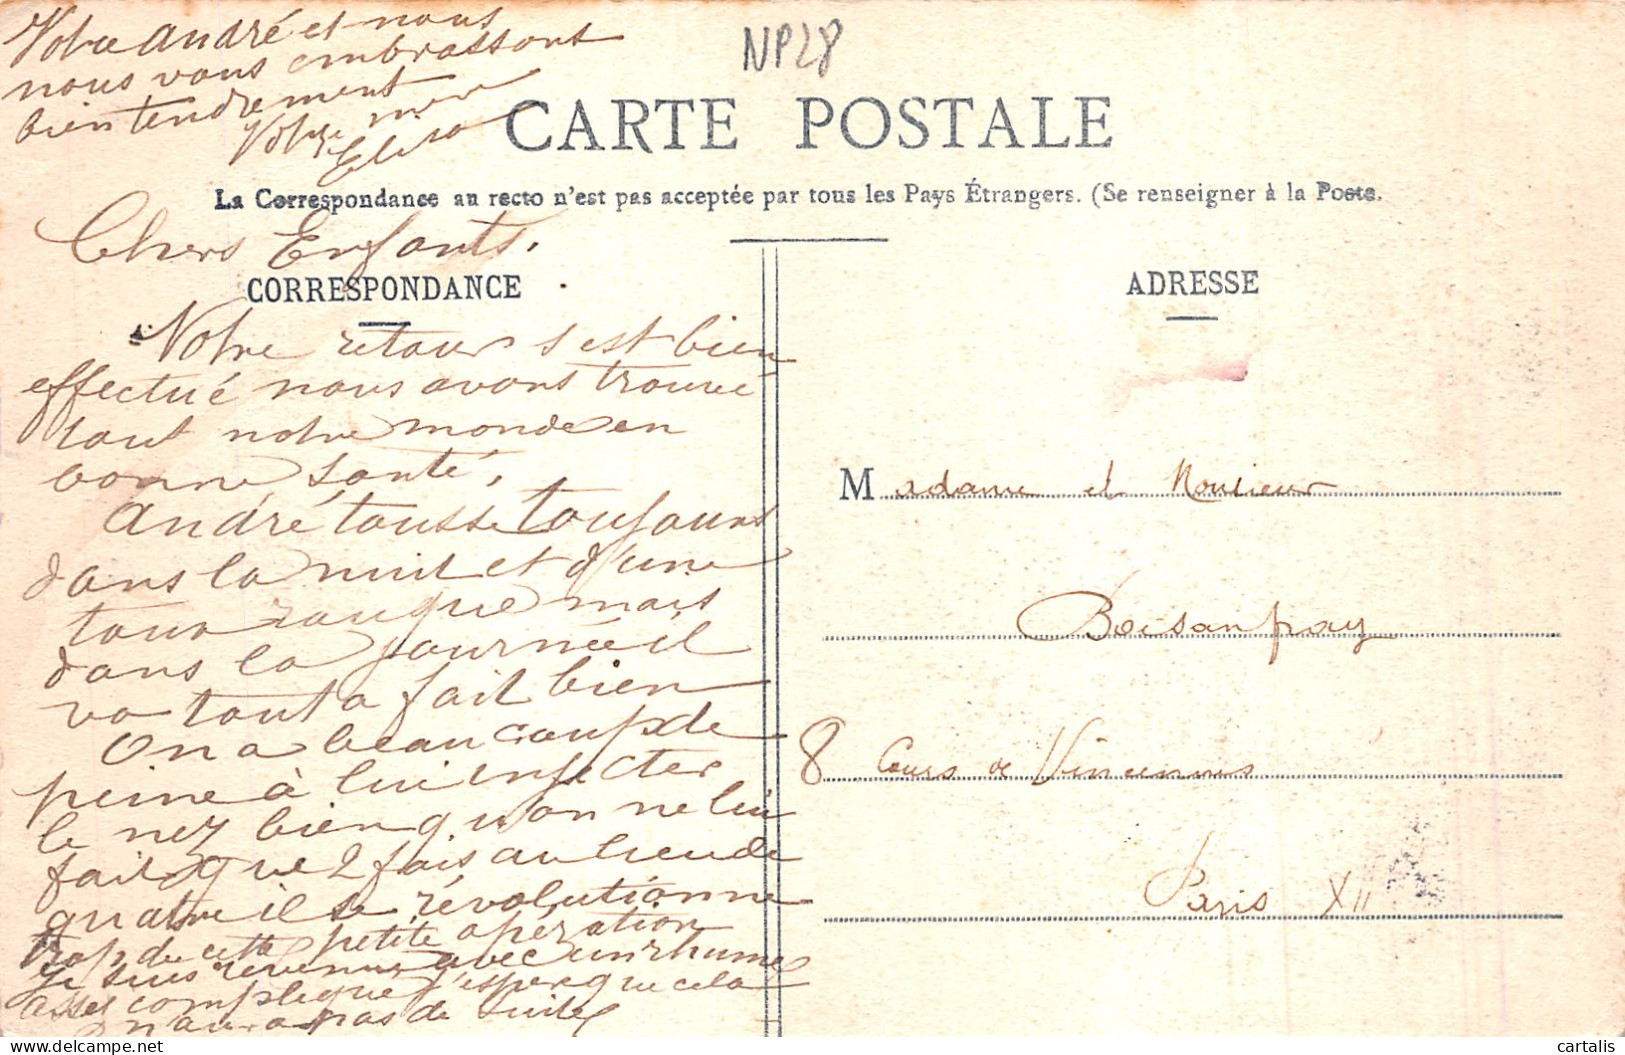 Votre André et nous
nous vous embrassons
bien tendrement
Votre mère
Elisa
NP28
CARTE POSTALE
La Correspondance au recto n'est pas acceptée par tous les Pays Étrangers. (Se renseigner à la Poste.
Chers Enfants.
CORRESPONDANCE
ADRESSE
Notre retour s est bien
effectué nous avons trouvé
tout notre monde en
bonne santé.
André tousse toujours
dans la nuit et d'une
toux rauque mais
dans la journée il
va tout a fait bien
On a beaucoup de
peine à lui infecter
le nez bien qu'on ne lui
fait que 2 fois au lieu de
quatre il se révolutionne
trop de cette petite opération
Je suis revenue avec un rhume
assez compliqué j'espère que cela
n'aura pas de suite
Madame et Monsieur
Boisanfray
8 Cours de Vincennes
Paris XII
cartalis